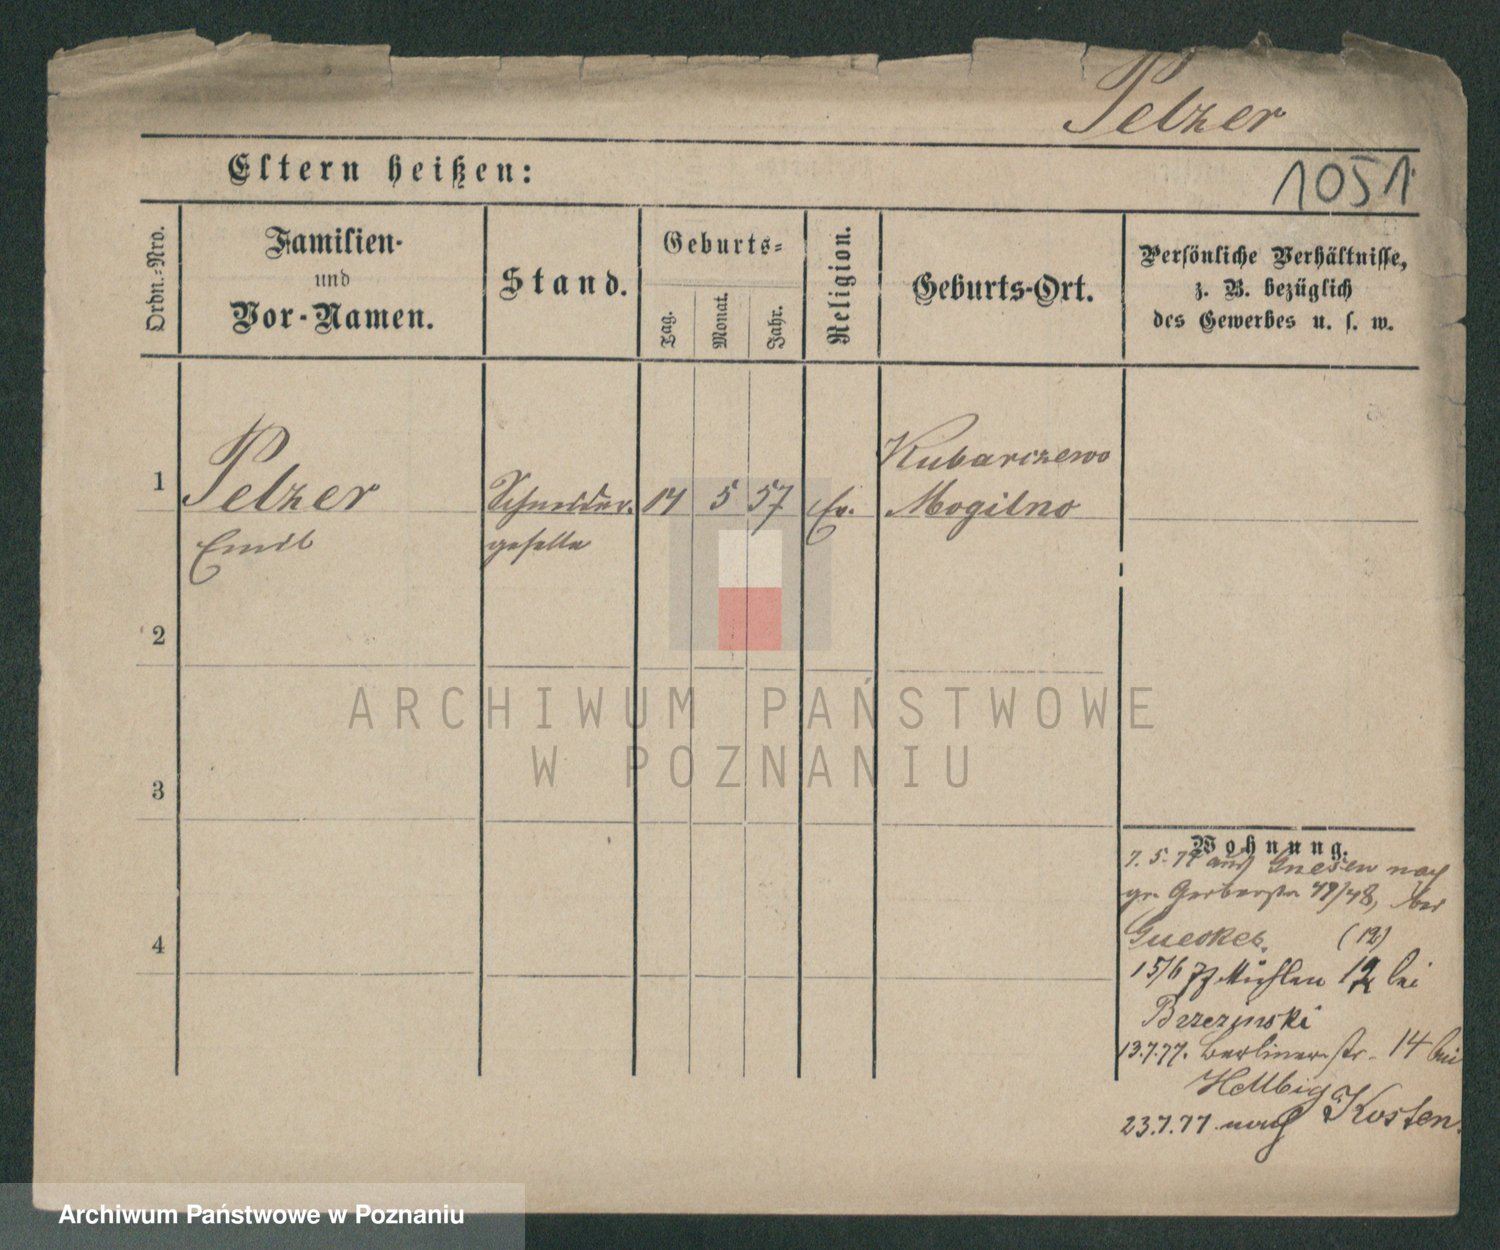 Pelzer
1051
Eltern heißen:
Ordn.-Nro.
Familien-
und
Vor-Namen.
Stand.
Geburts-
Tag.
Monat.
Jahr.
Religion.
Geburts-Ort.
Persönliche Verhältnisse,
z. B. bezüglich
des Gewerbes u. s. w.
1
Pelzer
Emil
Schneider-
geselle
17 5 57
Ev.
Kubarczewo
Mogilno
2
3
4
Wohnung.
7.5.77 aus Gnesen nach
gr. Gerberstr 49/48, bei
(12)
15/6 77 Mühlen 12 bei
Brzezinski
13.7.77. Berliner-str. 14 bei
Hellbig
23.7.77 nach Kosten.
ARCHIWUM PAŃSTWOWE
W POZNANIU
Archiwum Państwowe w Poznaniu